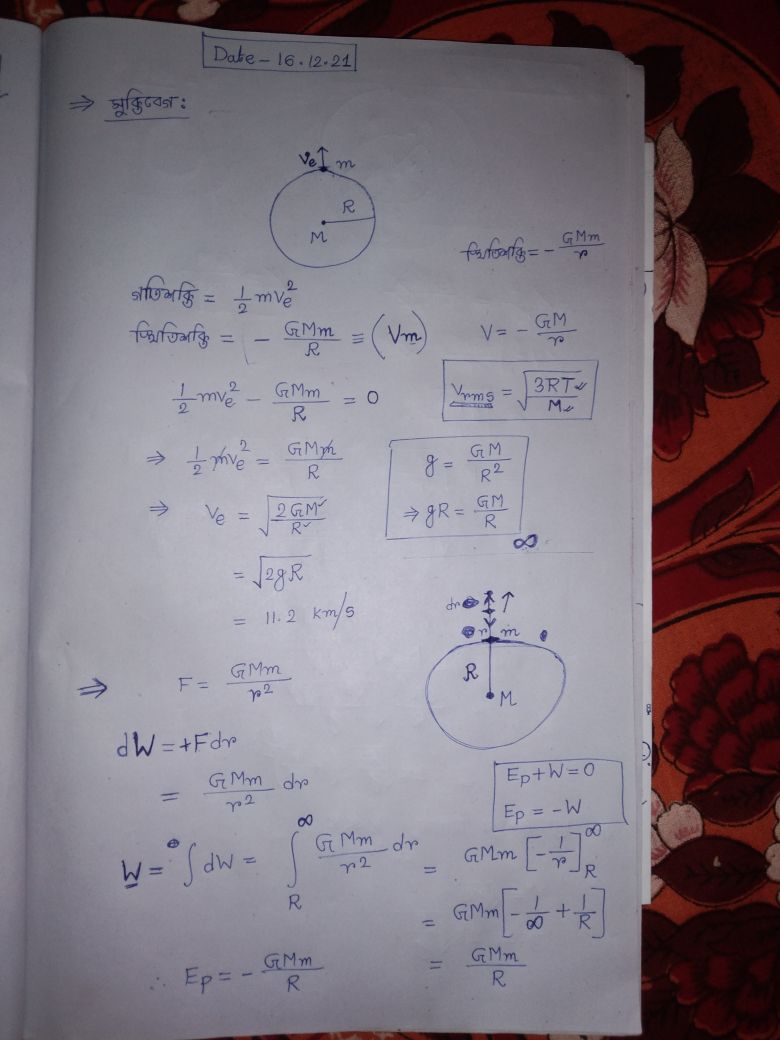 Date - 16.12.21
⇒ মুক্তিবেগ:
Ve ↑ m
R
M
স্থিতিশক্তি = - GMm/r
গতিশক্তি = 1/2 mVe²
স্থিতিশক্তি = - GMm/R ≡ (Vm) V = - GM/r
1/2 mVe² - GMm/R = 0
Vrms = √(3RT/M)
⇒ 1/2 mve² = GMm/R
g = GM/R²
⇒ Ve = √(2GM/R)
⇒ gR = GM/R
= √2gR
∞
= 11.2 km/s
dr
r m
R
M
⇒ F = GMm/r²
dW = +Fdr
= GMm/r² dr
Ep + W = 0
Ep = -W
W = ∫dW = ∫_R^∞ GMm/r² dr = GMm [-1/r]_R^∞
= GMm [-1/∞ + 1/R]
∴ Ep = - GMm/R = GMm/R